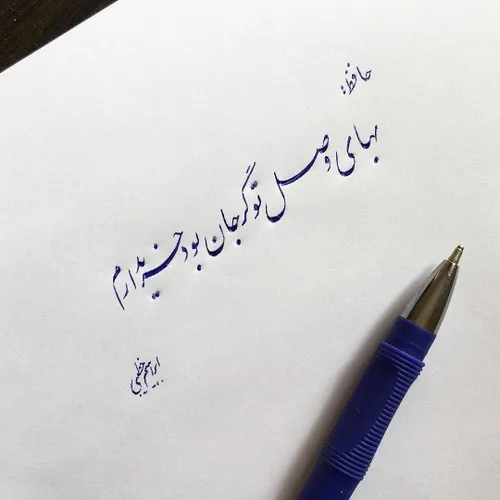 حافظ:
بهای وصل تو گر جان بود خریدارم